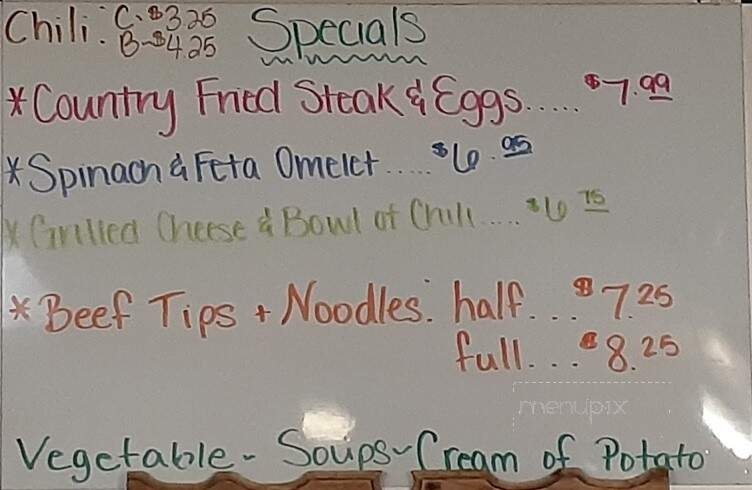 Chili: C-$3.25 Specials
B-$4.25
*Country Fried Steak & Eggs..... $7.99
*Spinach & Feta Omelet..... $6.95
*Grilled Cheese & Bowl of Chili..... $6 75
*Beef Tips + Noodles: half... $7.25
full... $8.25
menupix
Vegetable - Soups - Cream of Potato